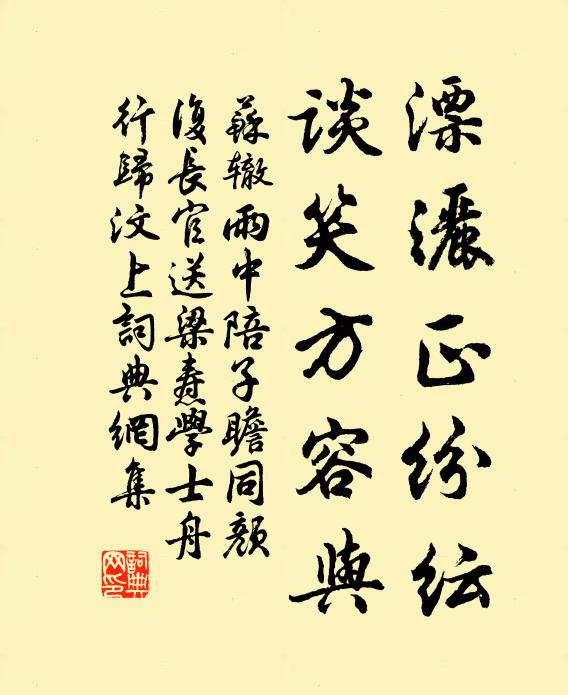 漂灑正紛紜
談笑方容與
蘇轍雨中陪子瞻同顏
復長官送梁燾學士舟
行歸汶上詞典網集
詞典网印